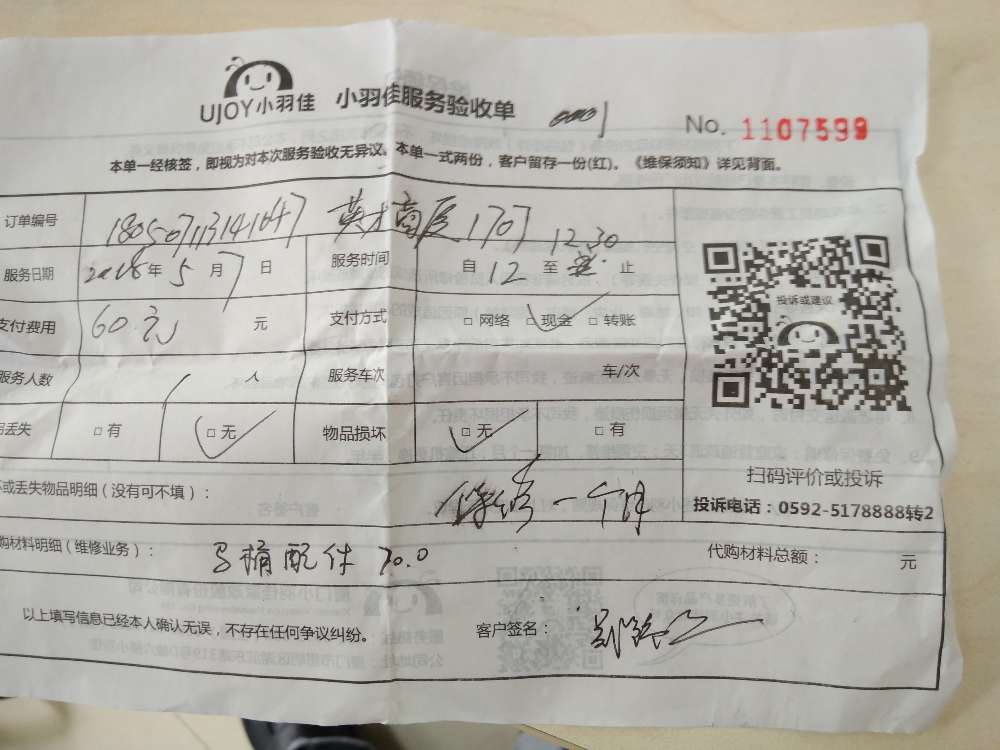 UJOY小羽佳 小羽佳服务验收单 0001 No. 1107599
本单一经核签，即视为对本次服务验收无异议。本单一式两份，客户留存一份(红)。《维保须知》详见背面。
订单编号 英才高层1707
服务日期 2018年5月7日 服务时间 自12至12.30止
支付费用 60元 元 支付方式 □网络 □现金 □转账
服务人数 1人 服务车次 车/次
丢失 □有 □无 物品损坏 □无 □有
投诉或建议
扫码评价或投诉
投诉电话：0592-5178888转2
坏或丢失物品明细（没有可不填）： 保修一个月
购材料明细（维修业务）： 马桶配件 70.0 代购材料总额： 元
以上填写信息已经本人确认无误，不存在任何争议纠纷。 客户签名：